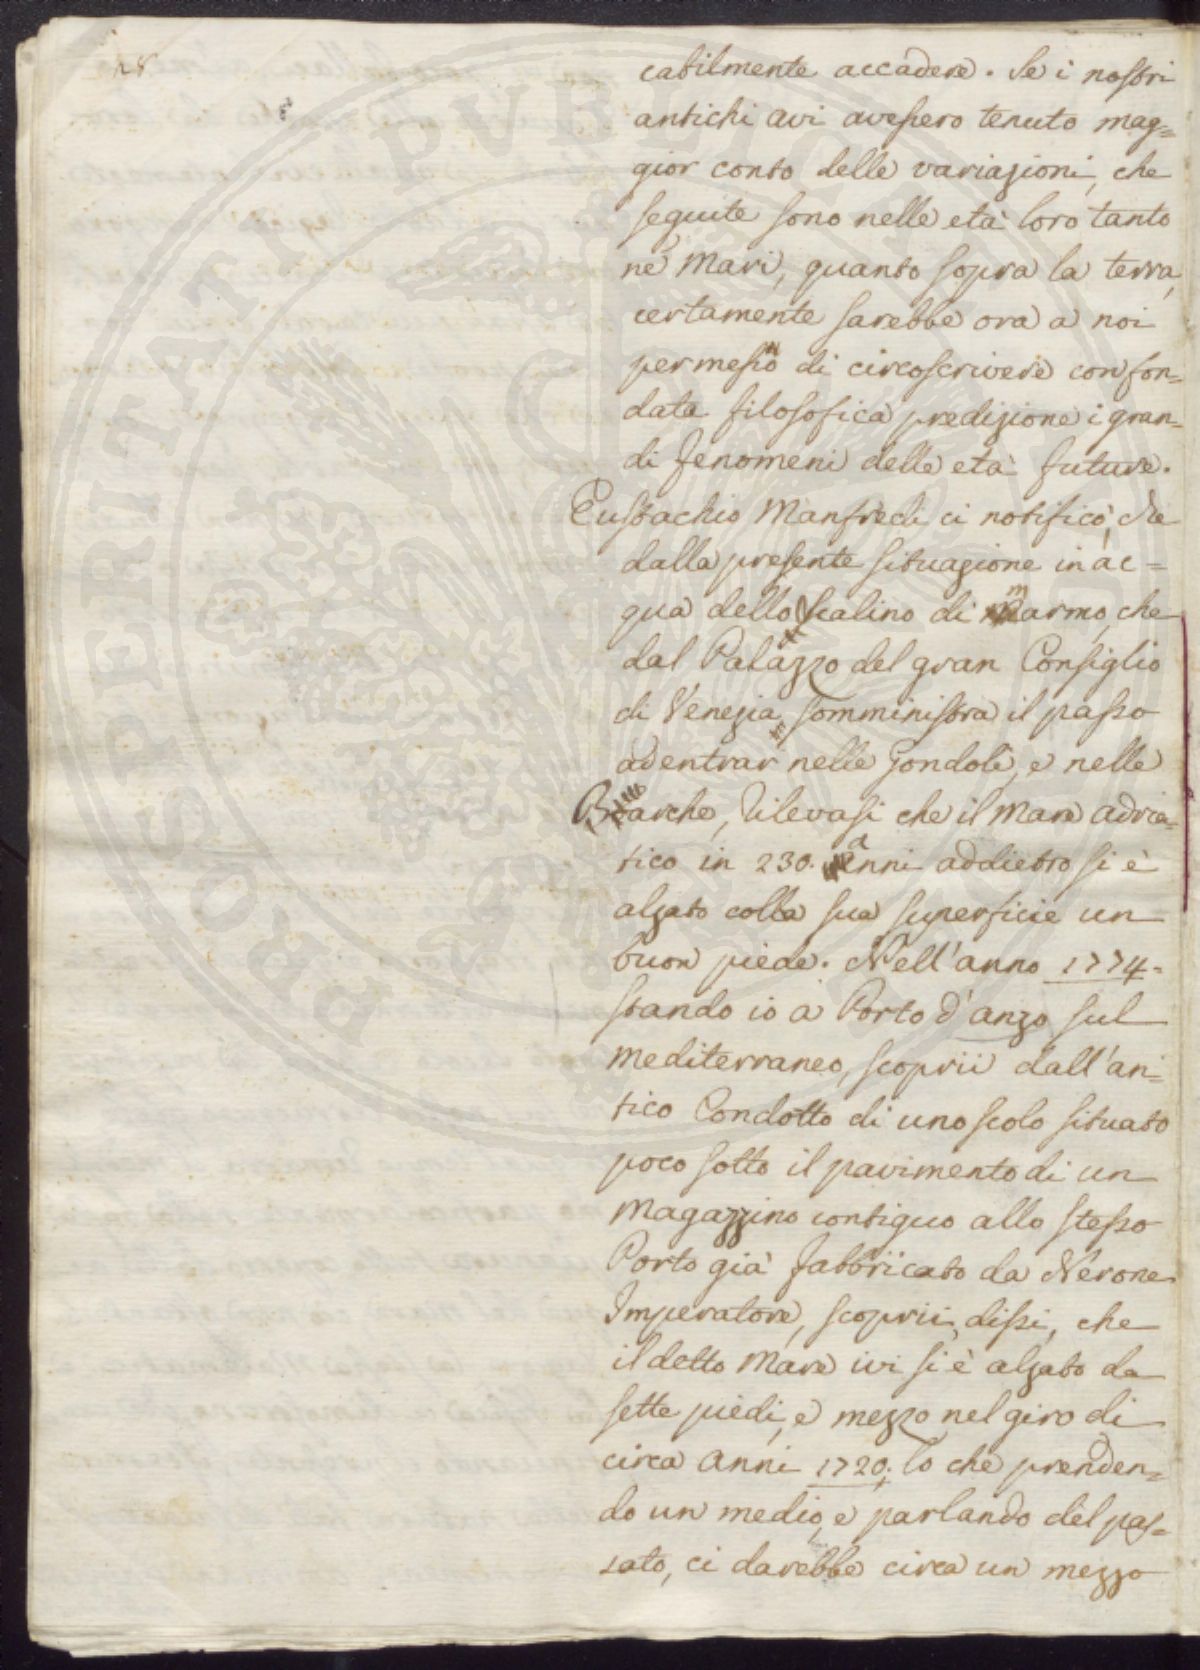 28
cabilmente accadere. Se i nostri
antichi avi avessero tenuto mag=
gior conto delle variazioni, che
seguite sono nelle età loro tanto
ne' Mari, quanto sopra la terra,
certamente sarebbe ora a noi
permesso di circoscrivere con fon=
data filosofica predizione i gran=
di fenomeni delle età future.
Eustachio Manfredi ci notificò, che
dalla presente situazione in ac=
qua dello scalino di marmo, che
dal Palazzo del gran Consiglio
di Venezia somministra il passo
ad entrar nelle gondole, e nelle
Barche, rilevasi che il Mare adria=
tico in 230. anni addietro si è
alzato colla sua superficie un
buon piede. Nell'anno 1774.
stando io a Porto d'anzo sul
Mediterraneo, scoprii dall'an=
tico Condotto di uno scolo situato
poco sotto il pavimento di un
Magazzino contiguo allo stesso
Porto già fabbricato da Nerone
Imperatore, scoprii, dissi, che
il detto Mare ivi si è alzato da
sette piedi, e mezzo nel giro di
circa anni 1720; lo che prenden=
do un medio, e parlando del pas=
sato, ci darebbe circa un mezzo
PROSPERITATI PUBLICAE